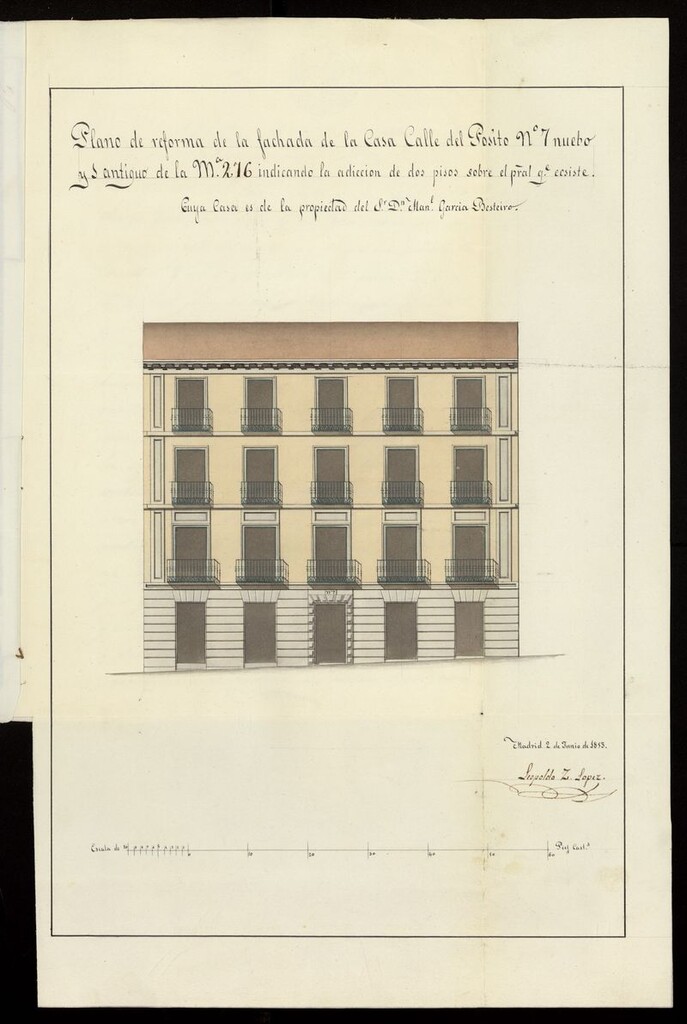 Plano de reforma de la fachada de la Casa Calle del Posito Nº 7 nuebo
y 5 antiguo de la Mª 276 indicando la adiccion de dos pisos sobre el pral q.e ecsiste.
Cuya Casa es de la propiedad del Sr Dn Manl Garcia Besteiro.
Nº 7
Madrid 2 de Junio de 1853.
Leopoldo Z. Lopez.
Escala de 10 0 10 20 30 40 50 60 Pies Casts